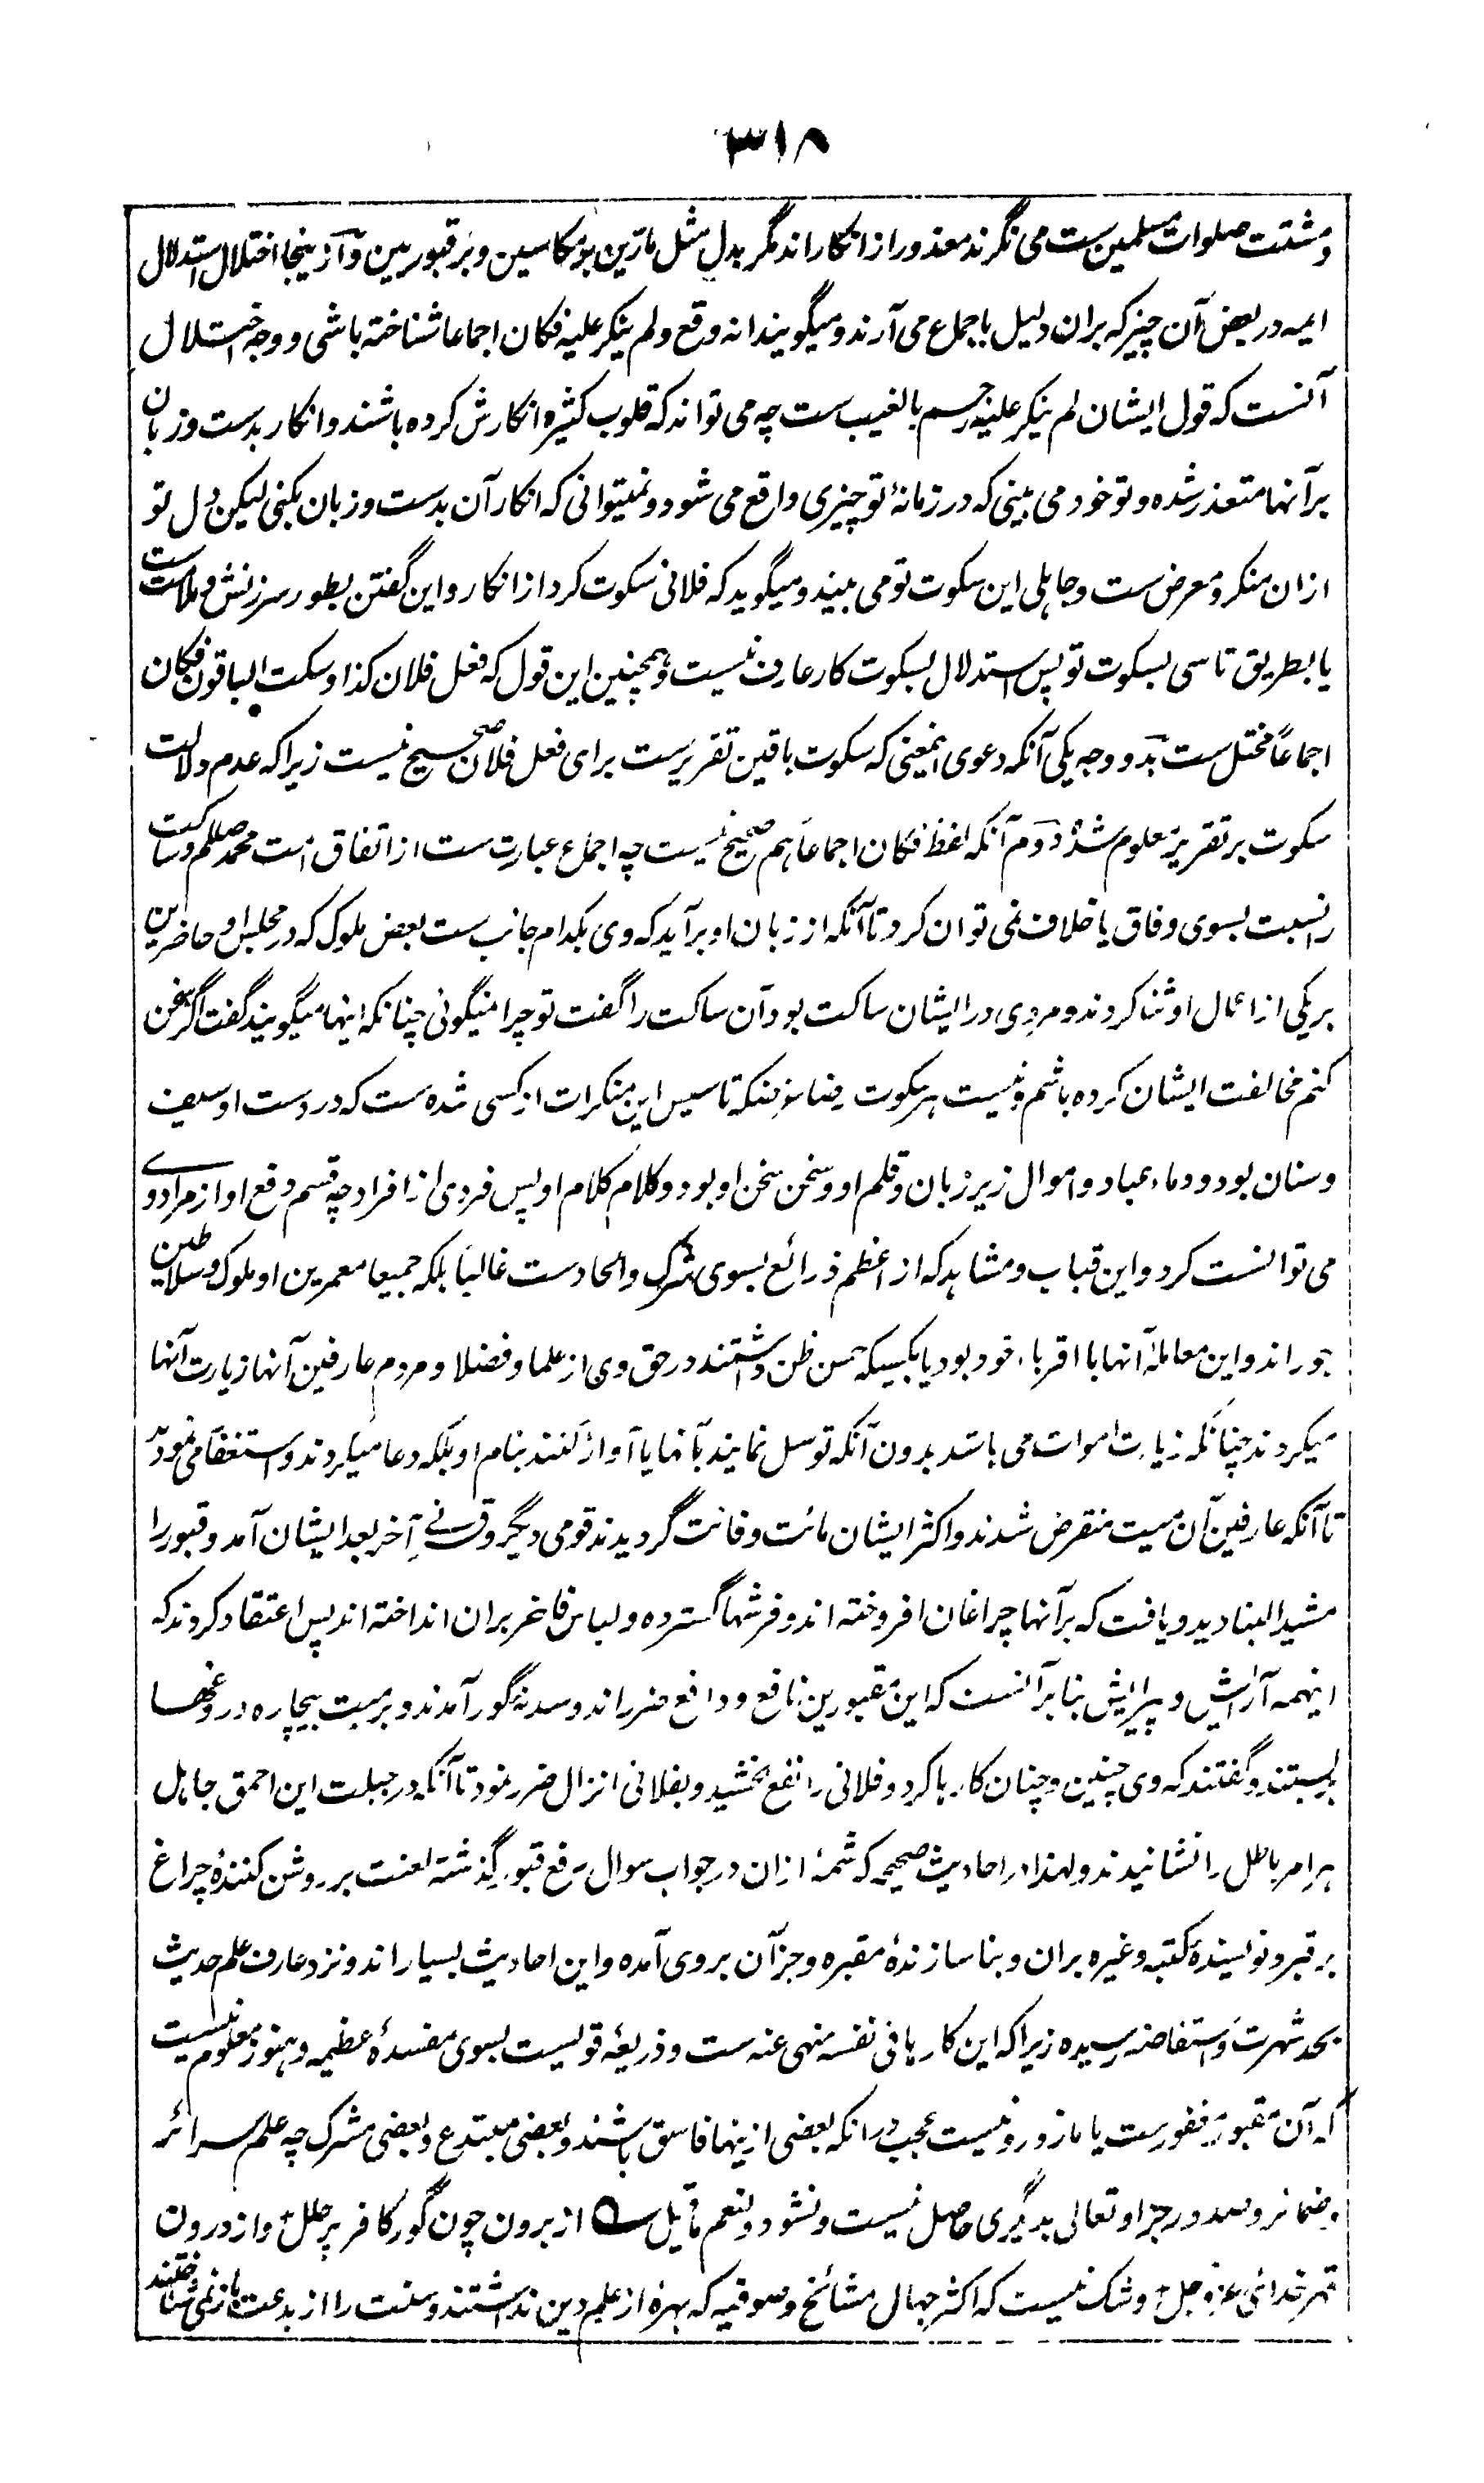 ۳۱۸
و مشتت صلوات مسلمین ست می نگرند معذور از انکار اند مگر بدل مثل مارین بو مکاسین و بر قبوریین و از ینجا اختلال استدلال
ایمه در بعض آن چیز که بران دلیل باجماع می آرند و میگویند انه وقع و لم ینکر علیه فکان اجماعا شناخته باشی و وجه اختلال
آنست که قول ایشان لم ینکر علیه رجم بالغیب ست چه می تواند که قلوب کثیره انکارش کرده باشند و انکار بدست و زبان
بر آنها متعذر شده و تو خود می بینی که در زمانهٔ تو چیزی واقع می شود و نمیتوانی که انکار آن بدست و زبان بکنی لیکن دل تو
ازان منکر و معرض ست و جاهلی این سکوت تو می بیند و میگوید که فلانی سکوت کرد از انکار و این گفتن بطور سرزنش و ملامت ست
یا بطریق تاسی بسکوت تو پس استدلال بسکوت کار عارف نیست و همچنین این قول که فعل فلان کذا و سکت الباقون فکان
اجماعاً مختل ست بدو وجه یکی آنکه دعوی اینمعنی که سکوت باقین تقریرست برای فعل فلان صحیح نیست زیرا که عدم دلالت
سکوت بر تقریر معلوم شد دوم آنکه لفظ فکان اجماعاً هم صحیح نیست چه اجماع عبارت ست از اتفاق امت محمد صللم و ساکت
را نسبت بسوی وفاق یا خلاف نمی توان کرد تا آنکه از زبان او برآید که وی بکدام جانب ست بعض ملوک که در مجلس او حاضرین
بر یکی از اعمال او ثنا کردند و مردی در ایشان ساکت بود آن ساکت را گفت تو چرا نمیگوئی چنانکه اینها میگویند گفت اگر سخن
کنم مخالفت ایشان کرده باشم و نیست هر سکوت رضا منکه تاسیس این منکرات از کسی شده ست که در دست او سیف
و سنان بود و دماء عباد و اموال زیر زبان و قلم او و سخن سخن او بود و کلام کلام او پس فردی از افراد چه قسم دفع او از مراد وے
می توانست کرد و این قباب و مشاهد که از اعظم ذرائع بسوی شرک و الحادست غالباً بلکه جمیعا معمرین او ملوک و سلاطین
جوراند و این معاملهٔ آنها با اقرباء خود بود یا بکسیکه حسن ظن داشتند در حق وی از علما و فضلا و مردم عارفین آنها زیارت آنها
میکردند چنانکه زیارت اموات می باشد بدون آنکه توسل نمایند بآنها یا آواز کنند بنام او بلکه دعا میکردند و استغفار می نمودند
تا آنکه عارفین آن میت منقرض شدند و اکثر ایشان مائت و فائت گردیدند قومی دیگر و قرنے آخر بعد ایشان آمد و قبور را
مشید البنا دید و یافت که بر آنها چراغان افروخته اند و فرشها گسترده و لباس فاخر بران انداخته اند پس اعتقاد کردند که
اینهمه آرایش و پیرایش بنا بر آنست که این مقبورین نافع و دافع ضرر اند و سدنه گور آمدند و بر میت بیچاره دروغها
بربستند و گفتند که وی چنین و چنان کارها کرد و فلانی را نفع بخشید و بفلانی انزال ضرر نمود تا آنکه در جبلت این احمق جاهل
هر امر باطل را نشانیدند و لهذا در احادیث صحیحه که شمهٔ ازان در جواب سوال رفع قبور گذشته لعنت بر روشن کنندهٔ چراغ
بر قبر و نویسندهٔ کتبه و غیره بران و بنا سازندهٔ مقبره و جز آن بروی آمده و این احادیث بسیار اند و نزد عارف علم حدیث
بحد شهرت و استفاضه رسیده زیرا که این کارها فی نفسه منهی عنه ست و ذریعهٔ قویست بسوی مفسدهٔ عظیمه و هنوز معلوم نیست
که آن مقبور مغفورست یا مازور و نیست عجب در انکه بعضی ازینها فاسق باشند و بعضی مبتدع و بعضی مشرک چه علم سرائر
ضمائر و صدور جز او تعالی بدیگری حاصل نیست و نشود و لنعم ما قیل ؎ از برون چون گور کافر پر حلل ✝ و از درون
قهر خدائی عز و جل ✝ و شک نیست که اکثر جهال مشائخ و صوفیه که بهرهٔ از علم دین نداشتند و سنت را از بدعت باز نمی شناختند